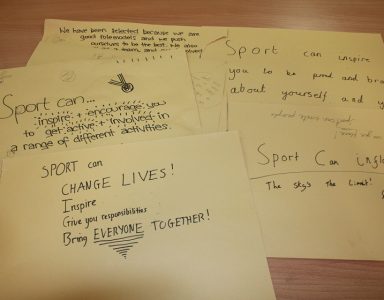 We have been selected because we are
good rolemodels and we push
ourselves to be the best. We also
Sport can inspire
you to be proud and
about yourself and
Sport can...
inspire + encourage you
to get active + involved in
a range of different activities.
Sport Can
The sky's the Limit!
SPORT can
CHANGE LIVES!
Inspire
Give you responsibilities
Bring EVERYONE TOGETHER!